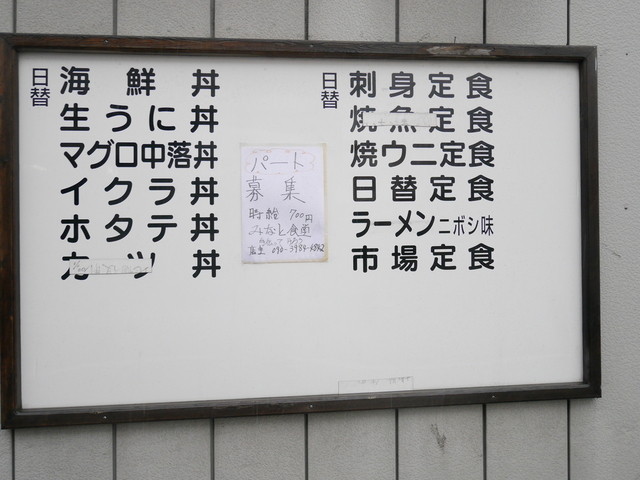 日替 海鮮丼
生うに丼
マグロ中落丼
イクラ丼
ホタテ丼
カツ丼
パート
募集
時給 700円
みなと食道
日替 刺身定食
焼魚定食
焼ウニ定食
日替定食
ラーメンニボシ味
市場定食